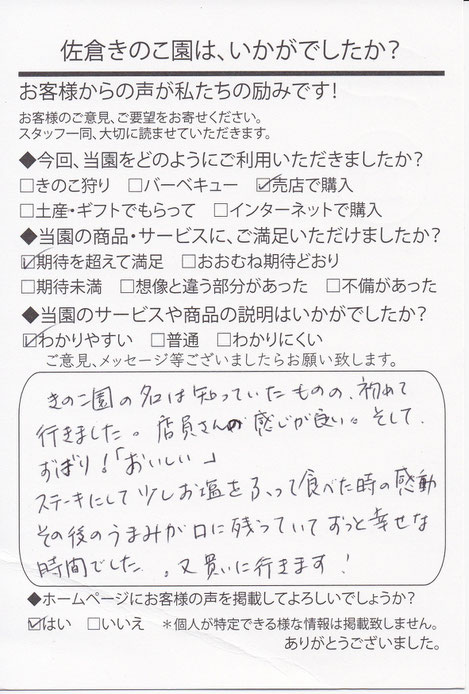 佐倉きのこ園は、いかがでしたか?
お客様からの声が私たちの励みです!
お客様のご意見、ご要望をお寄せください。
スタッフ一同、大切に読ませていただきます。
◆今回、当園をどのようにご利用いただきましたか?
□きのこ狩り □バーベキュー ☑売店で購入
□土産・ギフトでもらって □インターネットで購入
◆当園の商品・サービスに、ご満足いただけましたか?
☑期待を超えて満足 □おおむね期待どおり
□期待未満 □想像と違う部分があった □不備があった
◆当園のサービスや商品の説明はいかがでしたか?
☑わかりやすい □普通 □わかりにくい
ご意見、メッセージ等ございましたらお願い致します。
きのこ園の名は知っていたものの、初めて
行きました。店員さんの感じが良い。そして、
ずばり!「おいしい」
ステーキにして少しお塩をふって食べた時の感動
その後のうまみが口に残っていてずっと幸せな
時間でした。又買いに行きます!
◆ホームページにお客様の声を掲載してよろしいでしょうか?
☑はい □いいえ *個人が特定できる様な情報は掲載致しません。
ありがとうございました。